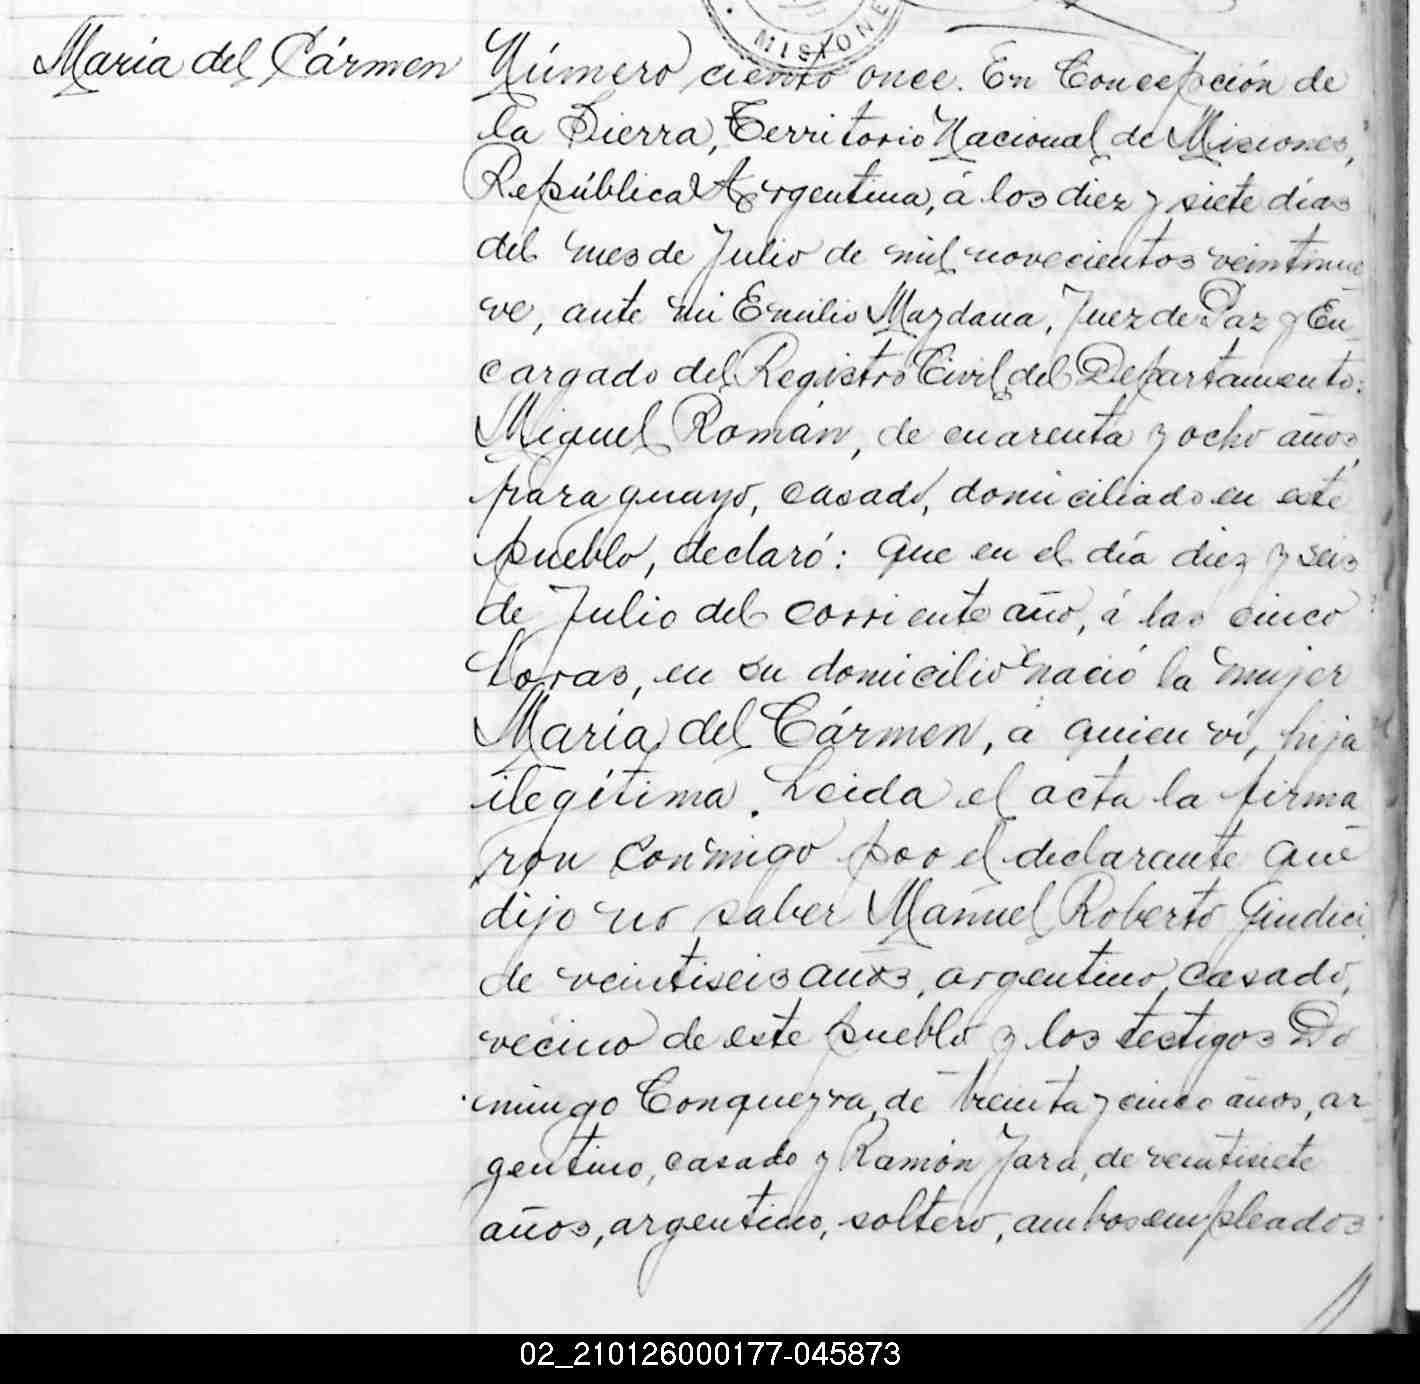 MISIONE
María del Cármen
Número ciento once. En Concepción de
la Sierra, Territorio Nacional de Misiones,
República Argentina, á los diez y siete días
del mes de Julio de mil novecientos veintinue
ve, ante mi Emilio Mazdana, Juez de Paz y En-
cargado del Registro Civil del Departamento:
Miguel Román, de cuarenta y ocho años,
paraguayo, casado, domiciliado en este
pueblo, declaró: Que en el día diez y seis
de Julio del corriente año, á las cinco
horas, en su domicilio nació la mujer
María del Cármen, á quien ví, hija
ilegítima. Leida el acta la firma
ron conmigo por el declarante que
dijo no saber Manuel Roberto Giudici,
de veintiseis años, argentino, casado,
vecino de este pueblo y los testigos Do-
mingo Conquezra, de treinta y cinco años, ar-
gentino, casado y Ramón Jara, de veintisiete
años, argentino, soltero, ambos empleados
02_210126000177-045873